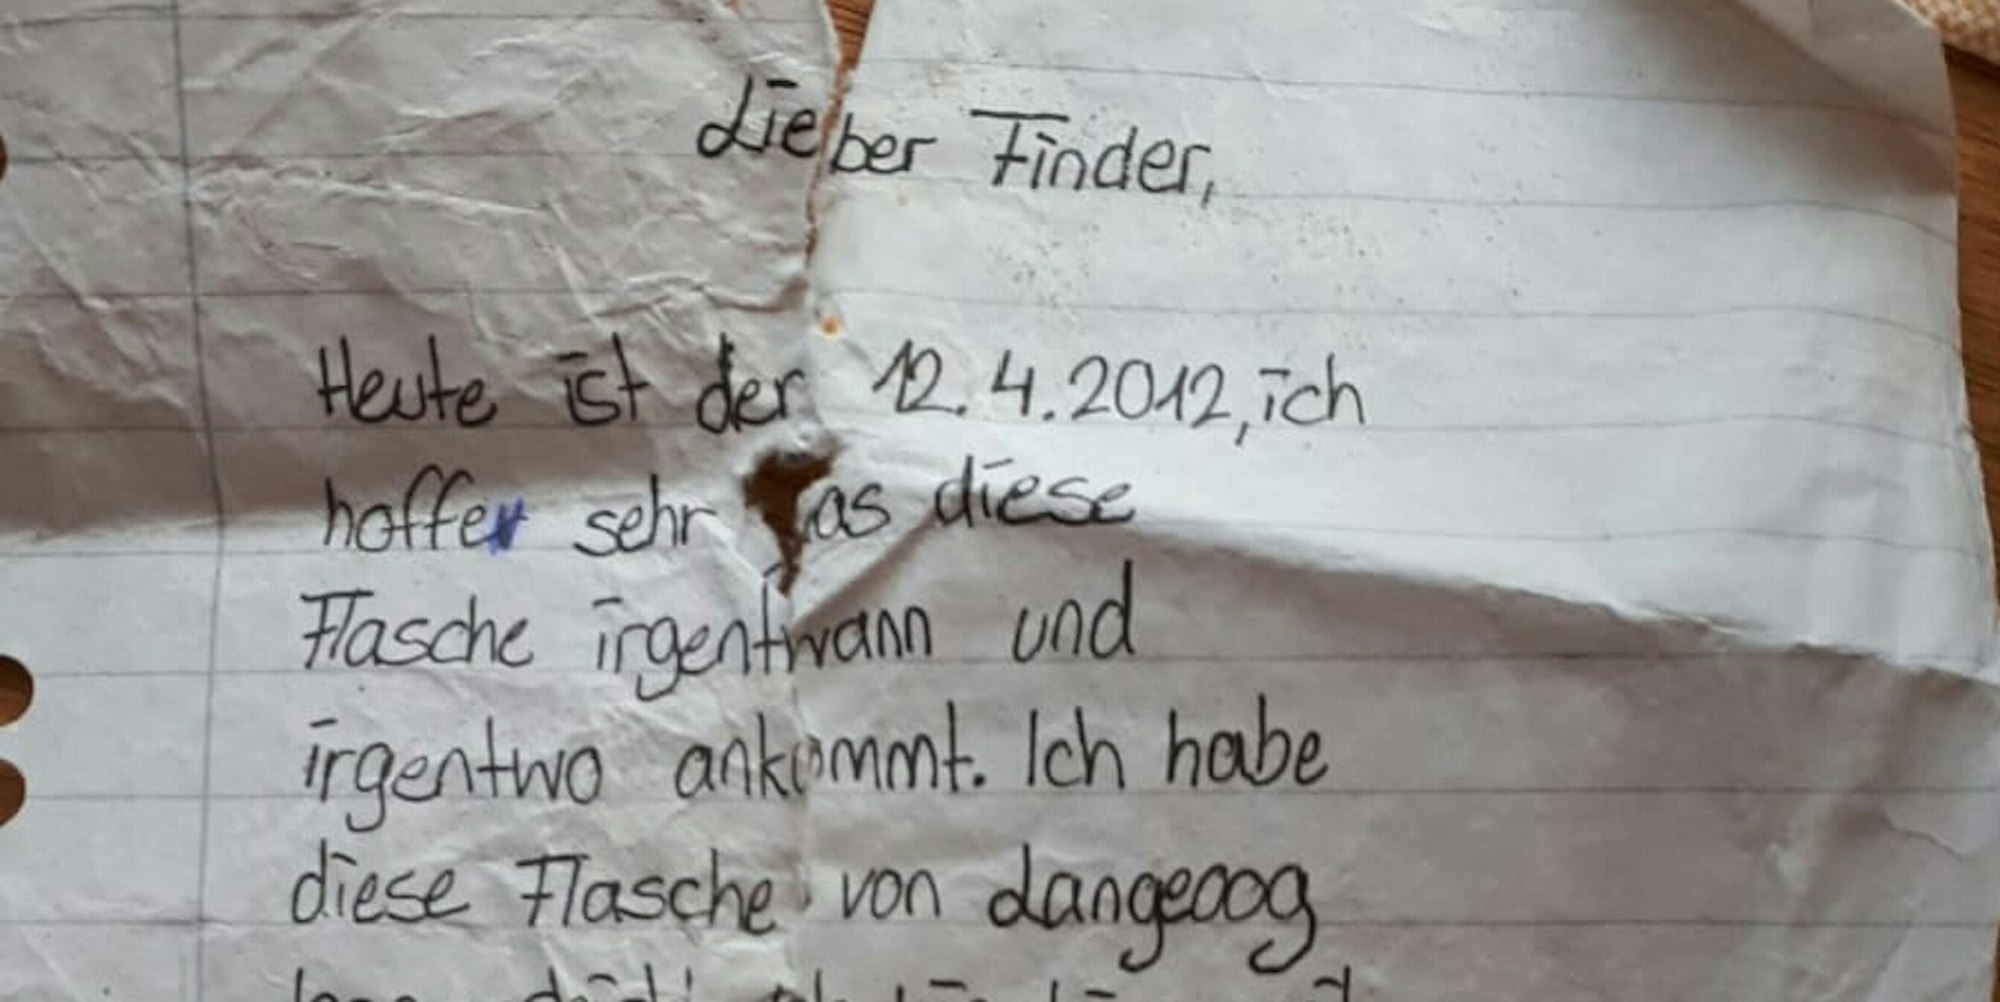 Lieber Finder,
Heute ist der 12.4.2012, ich
hoffe sehr das diese
Flasche irgentwann und
irgentwo ankommt. Ich habe
diese Flasche von Langeoog